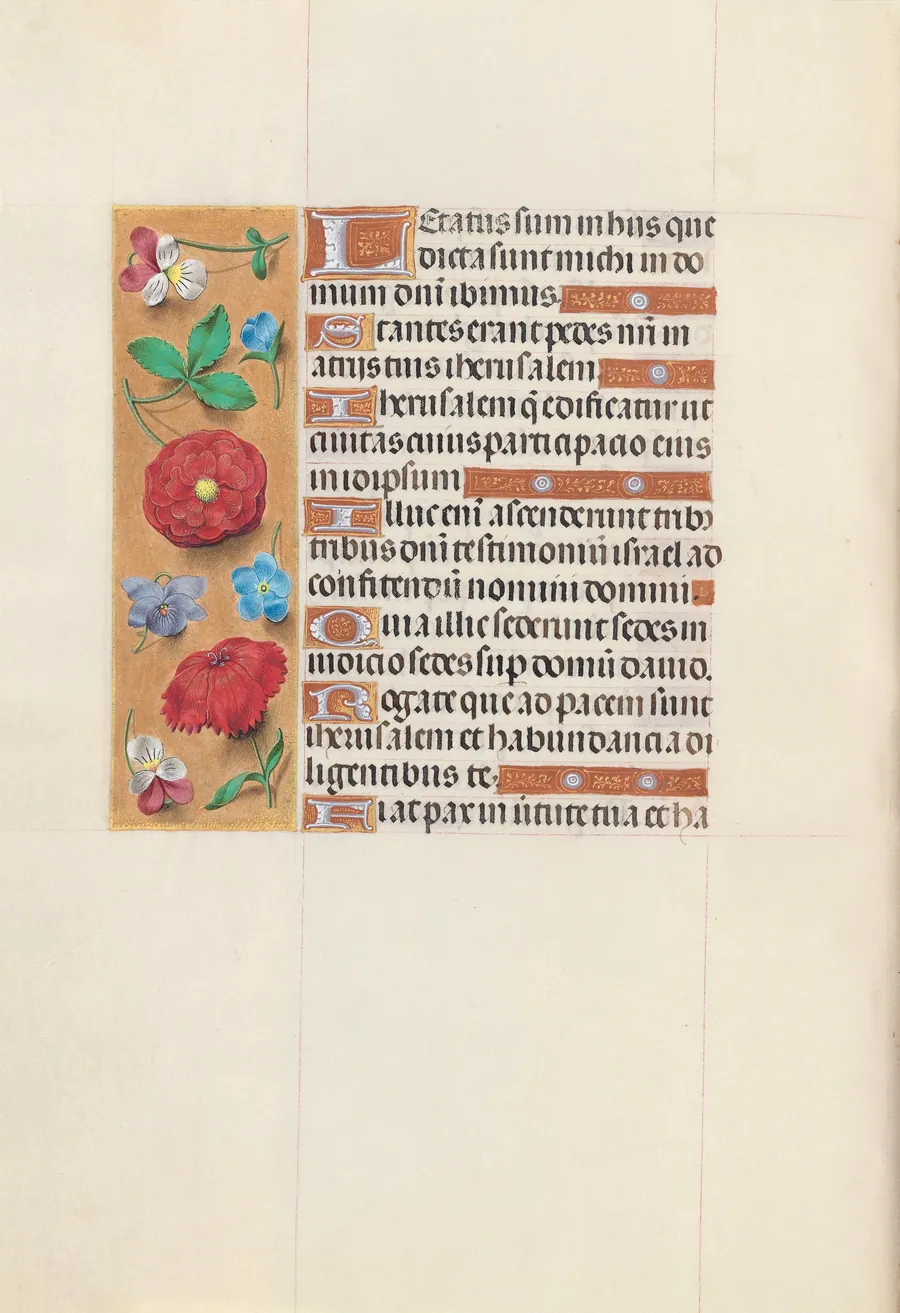 LEtatus sum in hiis que
dicta sunt michi in do
mum dnī ibimus.
Stantes erant pedes nr̄i in
atrijs tuis iherusalem.
Iherusalem q̄ edificatur ut
ciuitas cuius participacio eius
in idipsum
Illuc enī ascenderunt trib⁹
tribus dnī testimoniū israel ad
confitendū nomini domini.
Quia illic sederunt sedes in
iudicio sedes sup domū dauid.
Rogate que ad pacem sunt
iherusalem et habundancia di
ligentibus te.
Fiat pax in ūtute tua et ha